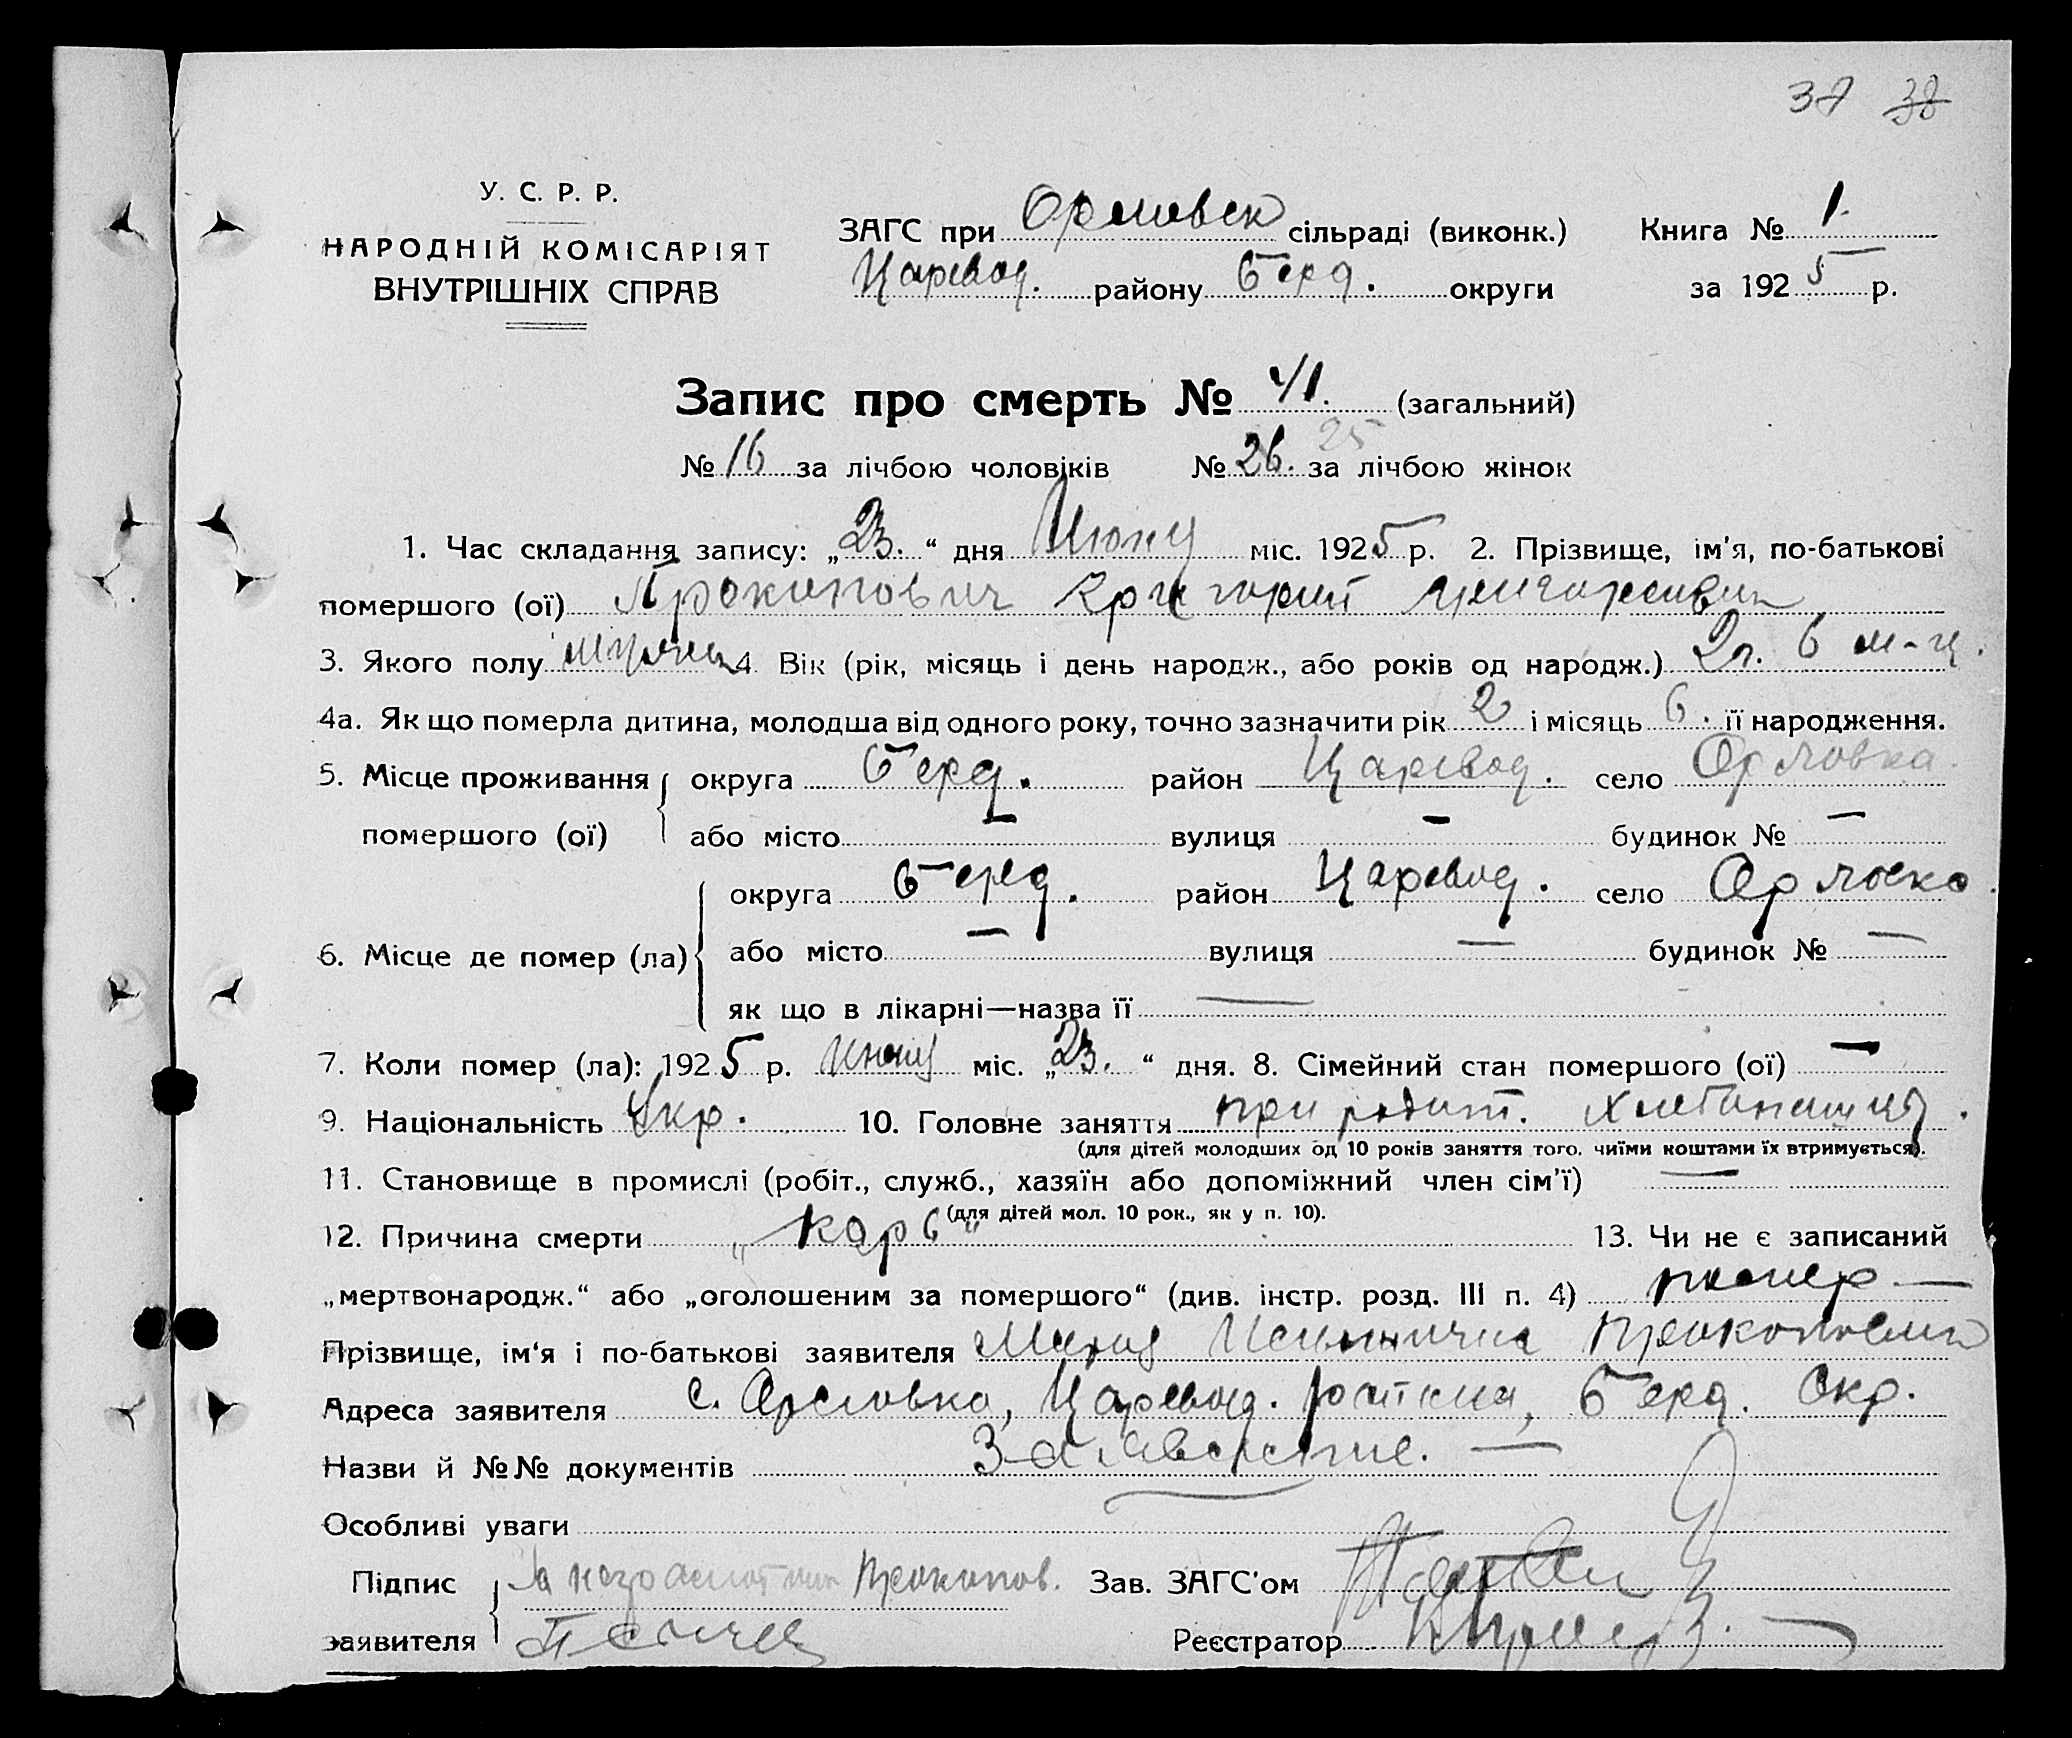 37 38
У. С. Р. Р.
НАРОДНІЙ КОМІСАРІЯТ
ВНУТРІШНІХ СПРАВ
ЗАГС при Орловск сільраді (виконк.) Книга № 1.
Царевод. району Берд. округи за 1925 р.
Запис про смерть № 41. (загальний)
№ 16 за лічбою чоловіків № 26. 25 за лічбою жінок
1. Час складання запису: „23.“ дня Июня міс. 1925 р. 2. Прізвище, ім'я, по-батькові
помершого (ої) Прокопович Григорий Григорьевич
3. Якого полу мужчин 4. Вік (рік, місяць і день народж., або років од народж.) 2 г. 6 м-ц.
4а. Як що померла дитина, молодша від одного року, точно зазначити рік 2 і місяць 6. її народження.
5. Місце проживання округа Берд. район Царевод. село Орловка.
помершого (ої) або місто — вулиця — будинок № —
округа Берд. район Царевод. село Орловка.
6. Місце де помер (ла) або місто — вулиця — будинок № —
як що в лікарні—назва її —
7. Коли помер (ла): 1925 р. Июня міс. „23.“ дня. 8. Сімейний стан помершого (ої) —
9. Національність Укр. 10. Головне заняття при родит. хлебопашцы.
(для дітей молодших од 10 років заняття того, чиїми коштами їх втримується).
11. Становище в промислі (робіт., служб., хазяїн або допоміжний член сім'ї) —
(для дітей мол. 10 рок., як у п. 10).
12. Причина смерти „корь“ 13. Чи не є записаний
„мертвонародж.“ або „оголошеним за помершого“ (див. інстр. розд. III п. 4) помер —
Прізвище, ім‘я і по-батькові заявителя Мария
Адреса заявителя с. Орловка, Царевод. района, Берд. Окр.
Назви й №№ документів Заявление. —
Особливі уваги
Підпис За неграмотную Прокопов. Зав. ЗАГС'ом
заявителя Реєстратор